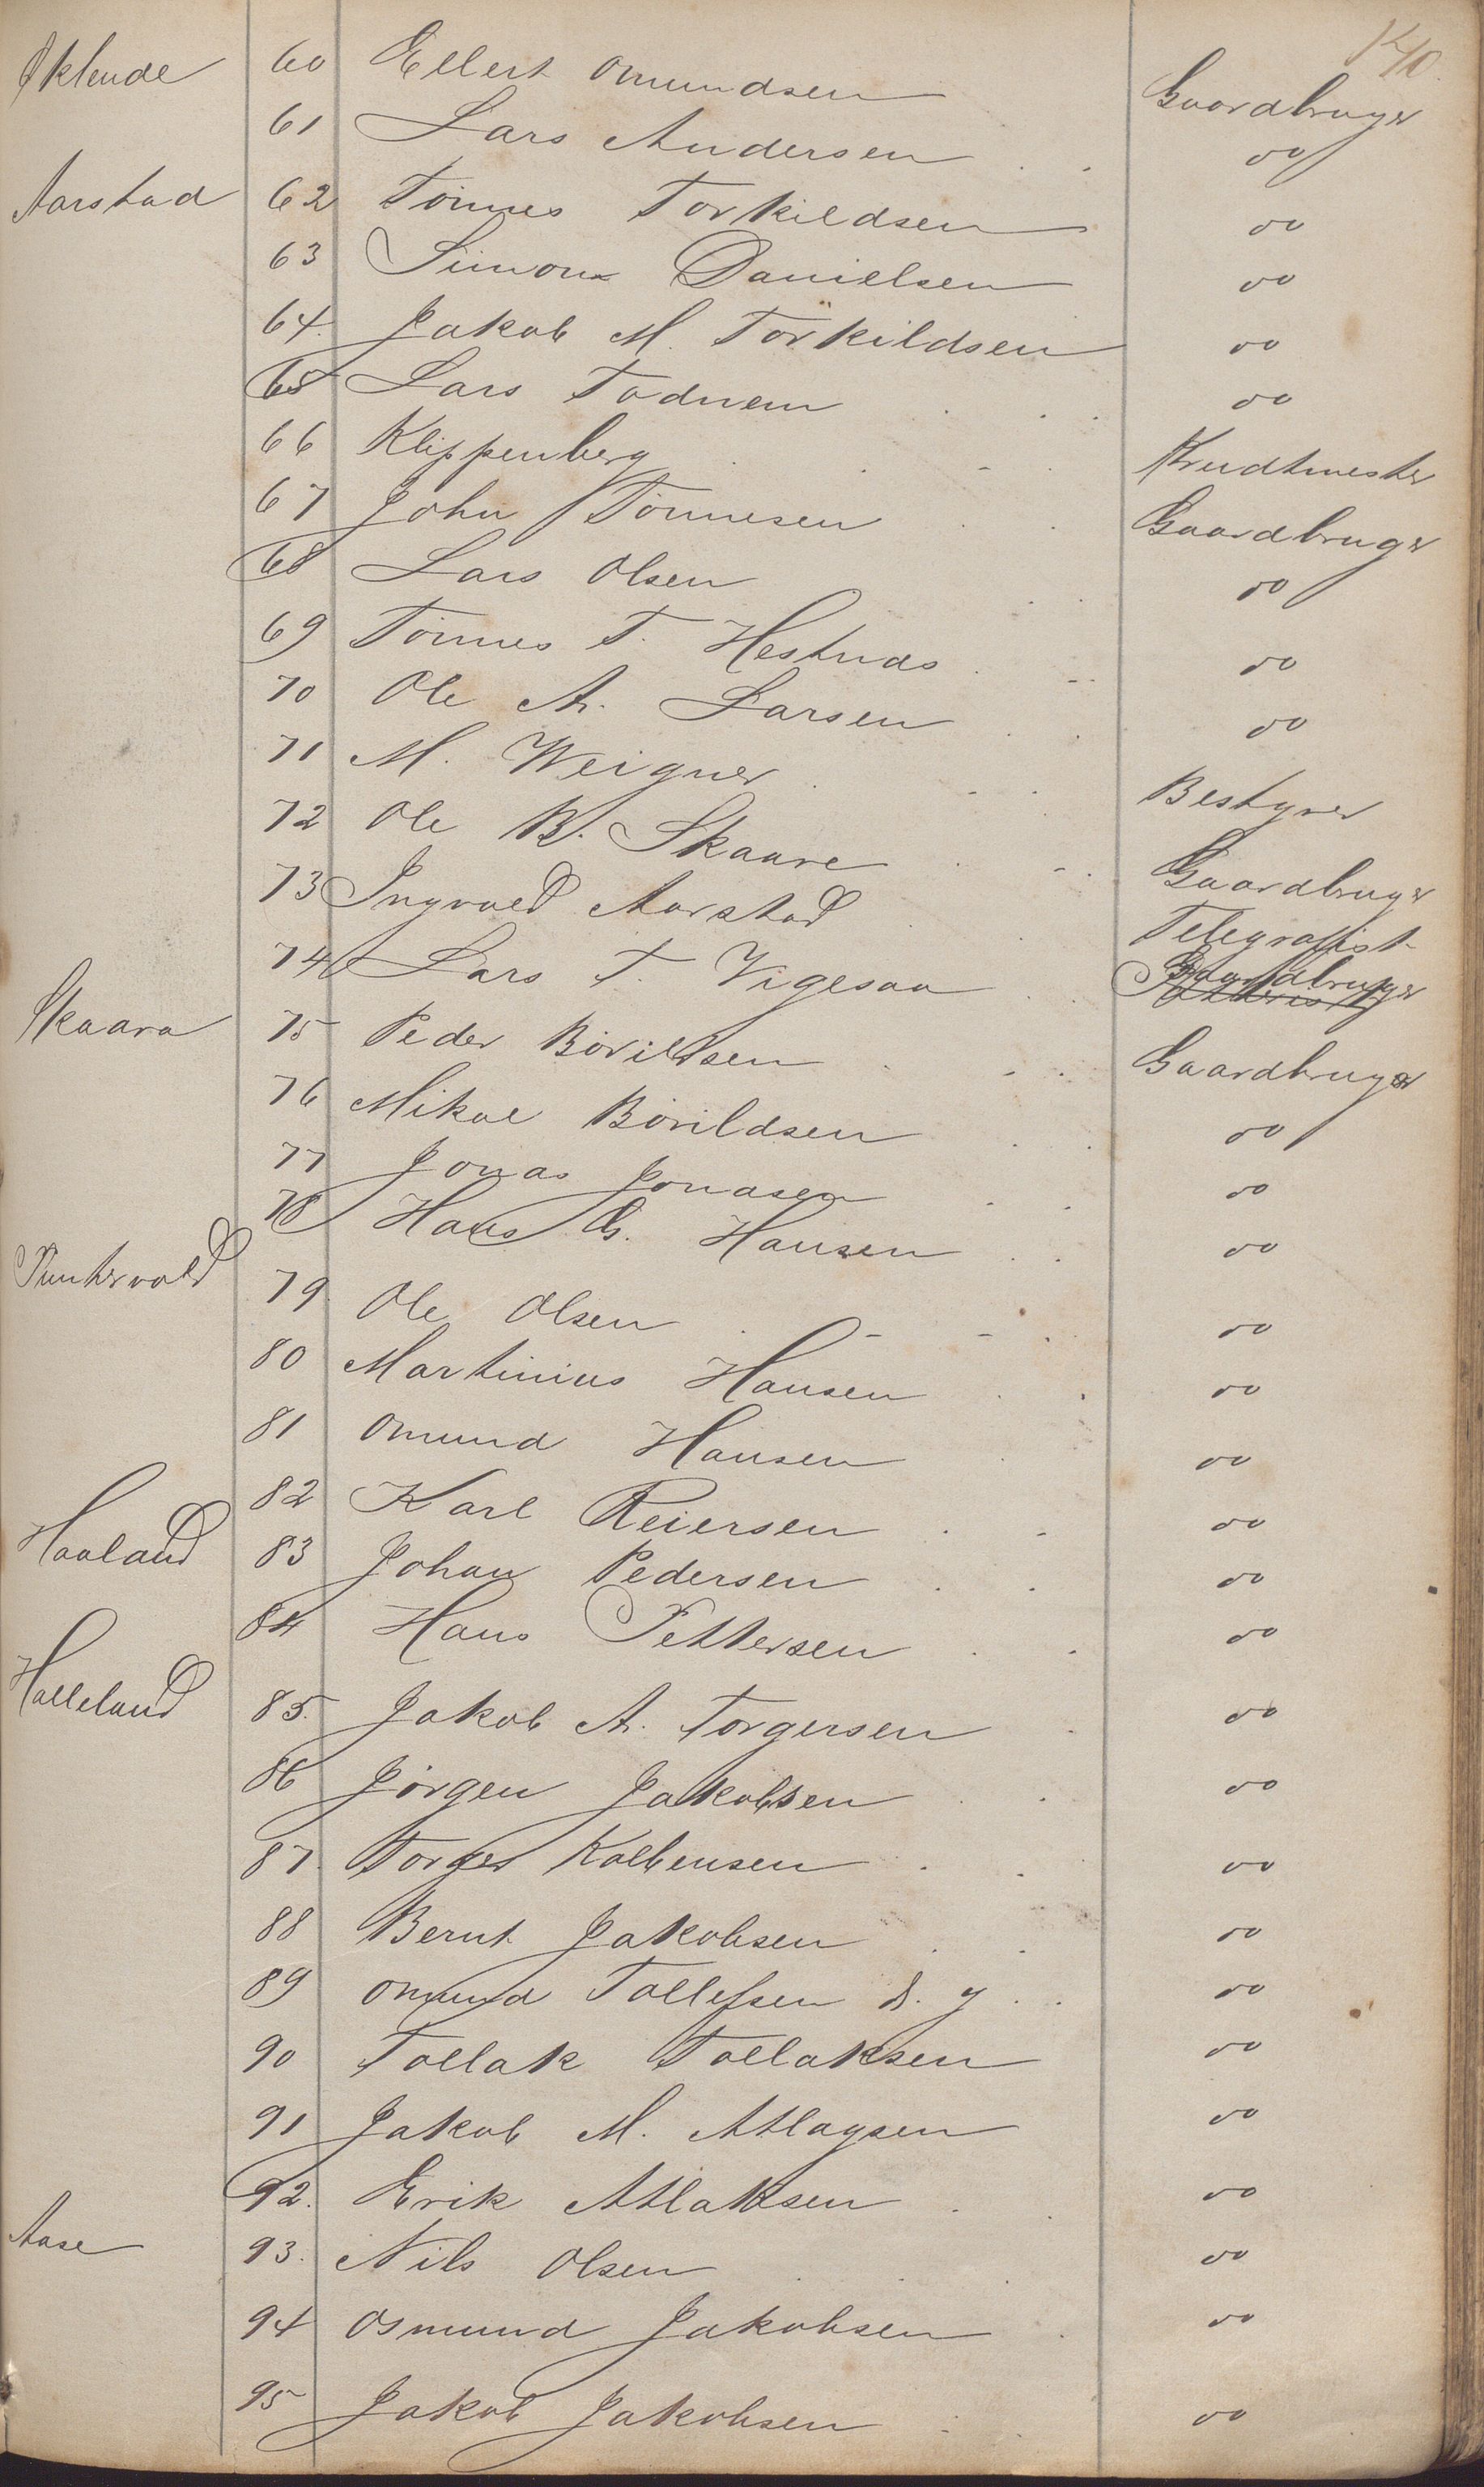 140.
Eklende 60 Ellert Omundsen Gaardbruger
61 Lars Andersen do
Aarstad 62 Tönnes Torkildsen do
63 Simon Danielsen do
64. Jakob M. Törkildsen do
65 Lars Todnem do
66 Klippenberg Krudtmester
67 John Tönnesen Gaardbruger
68 Lars Olsen do
69 Tönnes T. Hestnæs do
70 Ole A. Larsen do
71 M. Weigner Bestyrer
72 Ole B. Skaare Gaardbruger
73 Ingvald Aarstad Telegrafist
74 Lars T. Vigesaa Gaardbruger
Skaara 75 Peder Börildsen Gaardbruger
76 Mikal Börildsen do
77 Jonas Jonasen do
78 Hans G. Hansen do
Puntervold 79 Ole Olsen do
80 Martinius Hansen do
81 Omund Hansen do
82 Karl Reiersen do
Haaland 83 Johan Pedersen do
84 Hans Pettersen do
Halleland 85. Jakob A. Torgersen do
86 Jörgen Jakobsen do
87. Torger Kolbensen do
88 Bernt Jakobsen do
89 Omund Tollefsen d. y. do
90 Tollak Tollaksen do
91 Jakob M. Atlagsen do
92. Erik Atlaksen do
Aase 93. Nils Olsen do
94 Osmund Jakobsen do
95 Jakob Jakobsen do